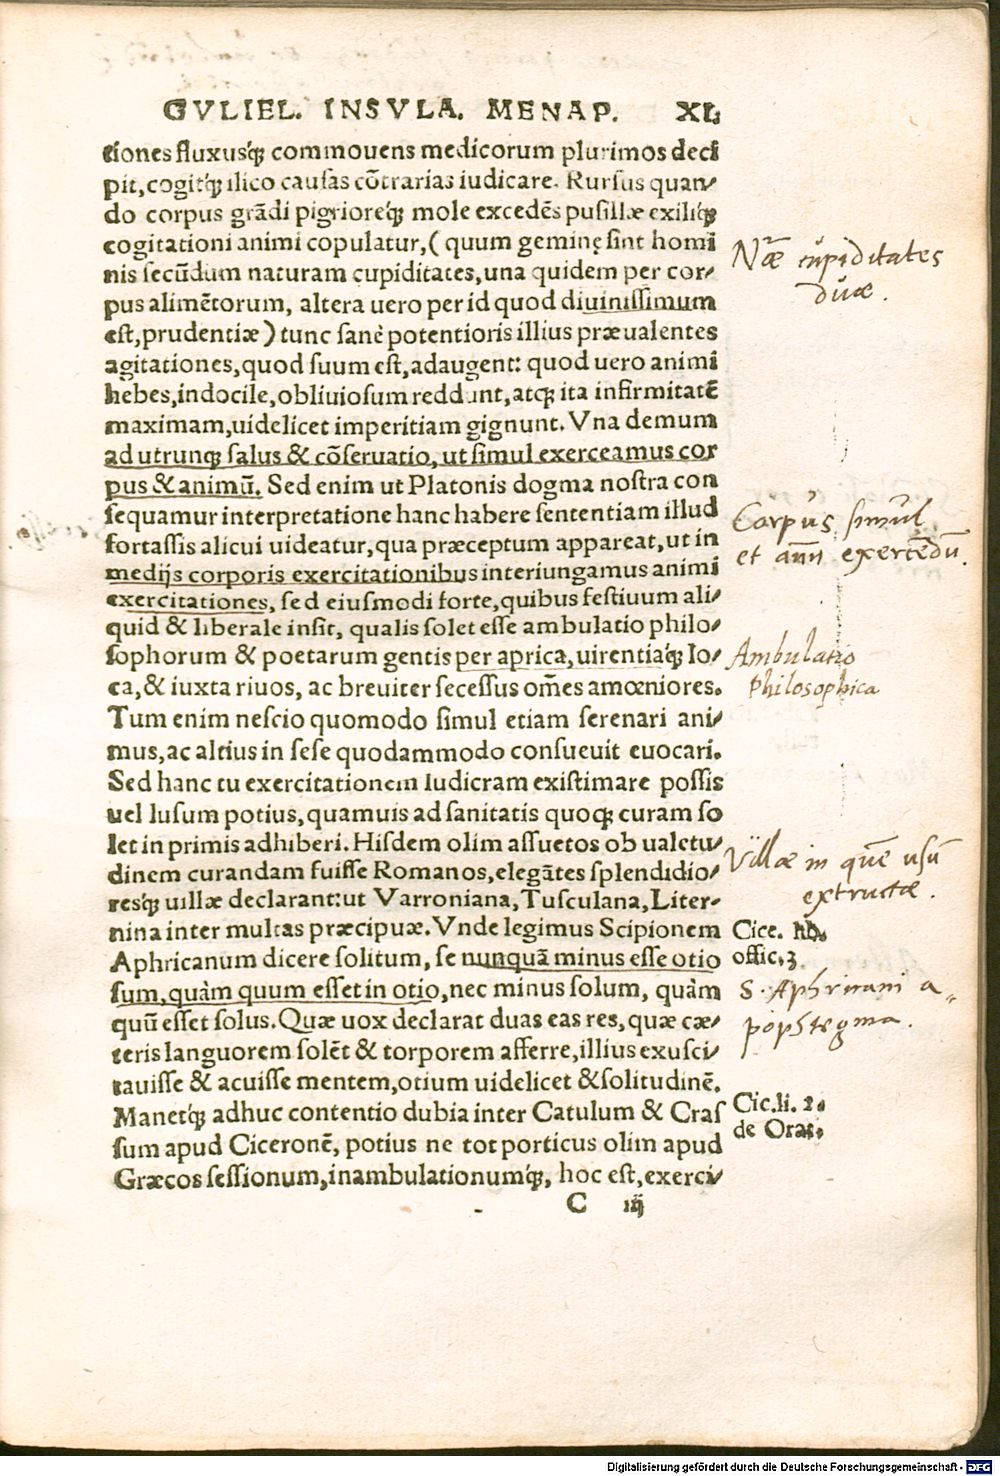 GVLIEL. INSVLA. MENAP. XL
tiones fluxusq́ꝫ commouens medicorum plurimos deci
pit, cogitq́ꝫ ilico causas cōtrarias iudicare. Rursus quan-
do corpus grādi pigrioreq́ꝫ mole excedēs pusillæ exiliq́ꝫ
cogitationi animi copulatur, (quum geminę sint homi
nis secūdum naturam cupiditates, una quidem per cor-
pus alimētorum, altera uero per id quod diuinissimum
est, prudentiæ) tunc sanè potentioris illius præualentes
agitationes, quod suum est, adaugent: quod uero animi
hebes, indocile, obliuiosum reddunt, atqꝫ ita infirmitatē
maximam, uidelicet imperitiam gignunt. Vna demum
ad utrunqꝫ salus & cōseruatio, ut simul exerceamus cor
pus & animū. Sed enim ut Platonis dogma nostra con
sequamur interpretatione hanc habere sententiam illud
fortassis alicui uideatur, qua præceptum appareat, ut in
medijs corporis exercitationibus interiungamus animi
exercitationes, sed eiusmodi forte, quibus festiuum ali-
quid & liberale insit, qualis solet esse ambulatio philo-
sophorum & poetarum gentis per aprica, uirentiaq́ꝫ lo-
ca, & iuxta riuos, ac breuiter secessus om̄es amœniores.
Tum enim nescio quomodo simul etiam serenari ani-
mus, ac altius in sese quodammodo consueuit euocari.
Sed hanc tu exercitationem ludicram existimare possis
uel lusum potius, quamuis ad sanitatis quoqꝫ curam so
let in primis adhiberi. Hisdem olim assuetos ob ualetu-
dinem curandam fuisse Romanos, elegātes splendidio-
resq́ꝫ uillæ declarant: ut Varroniana, Tusculana, Liter-
nina inter multas præcipuæ. Vnde legimus Scipionem
Aphricanum dicere solitum, se nunquā minus esse otio
sum, quàm quum esset in otio, nec minus solum, quàm
quū esset solus. Quæ uox declarat duas eas res, quæ cæ-
teris languorem solēt & torporem afferre, illius exusci-
tauisse & acuisse mentem, otium uidelicet & solitudinē.
Manetq́ꝫ adhuc contentio dubia inter Catulum & Cras
sum apud Ciceronē, potius ne tot porticus olim apud
Græcos sessionum, inambulationumq́ꝫ, hoc est, exerci-
C iij
Nr̄æ cupiditates
duæ.
Corpus simul
et aīm exercēdū.
Ambulatio
Philosophica
Villæ in quē usū
extructæ.
Cice. lib.
offic. 3
S. Aphricani a-
pophtegma.
Cic. li. 2.
de Orat.